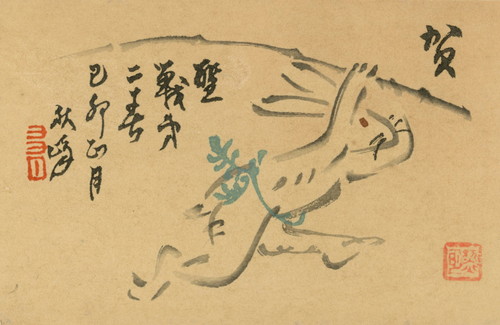 賀
聖
戰第
二春
己卯正月
秋峰